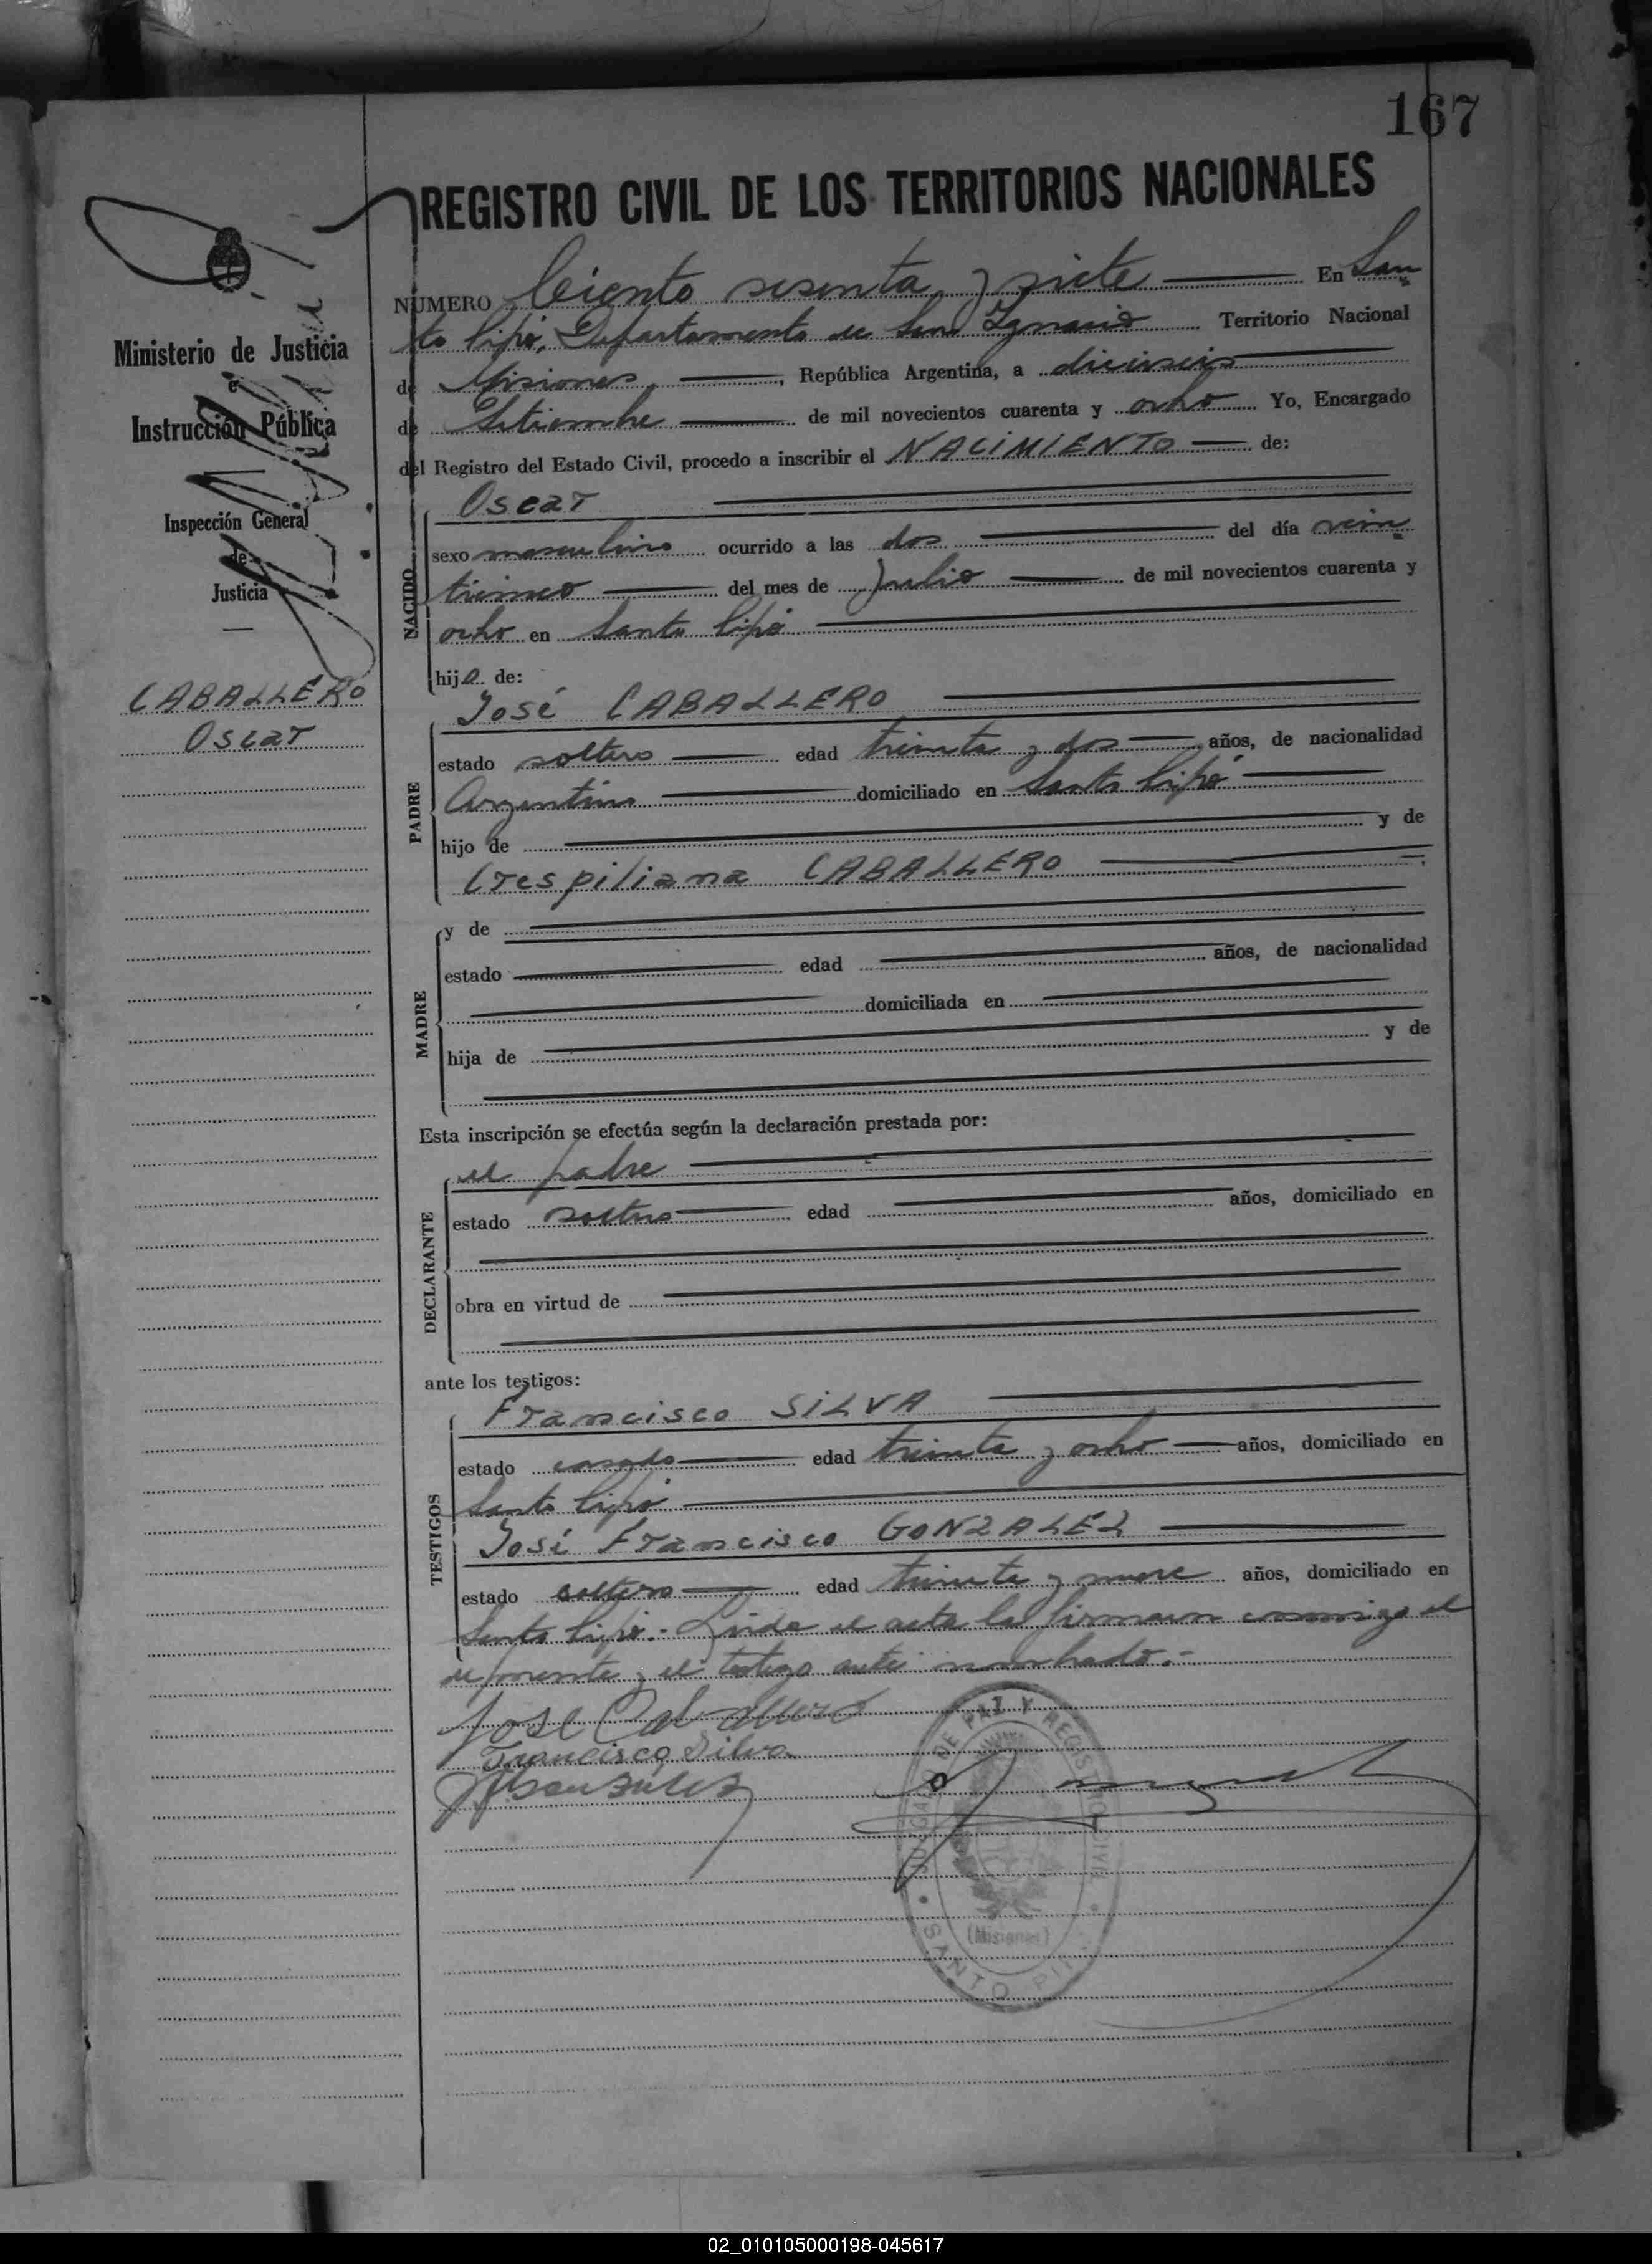 167
REGISTRO CIVIL DE LOS TERRITORIOS NACIONALES
NÚMERO Ciento sesenta y siete En San
to Pipó, Departamento de San Ignacio Territorio Nacional
de Misiones, República Argentina, a dieciseis
de Setiembre de mil novecientos cuarenta y ocho Yo, Encargado
del Registro del Estado Civil, procedo a inscribir el NACIMIENTO de:
Ministerio de Justicia
e
Instrucción Pública
Inspección General
de
Justicia
CABALLERO
Oscar
NACIDO
Oscar
sexo masculino ocurrido a las dos del día vein
ticinco del mes de Julio de mil novecientos cuarenta y
ocho en Santo Pipó
hijo de:
PADRE
José CABALLERO
estado soltero edad treinta y dos años, de nacionalidad
Argentino domiciliado en Santo Pipó
hijo de y de
Crespiliana CABALLERO
MADRE
y de
estado edad años, de nacionalidad
domiciliada en
hija de y de
Esta inscripción se efectúa según la declaración prestada por:
DECLARANTE
el padre
estado soltero edad años, domiciliado en
obra en virtud de
ante los testigos:
TESTIGOS
Francisco SILVA
estado casado edad treinta y ocho años, domiciliado en
Santo Pipó
José Francisco GONZALEZ
estado soltero edad treinta y nueve años, domiciliado en
Santo Pipó.- Leida el acta la firmaron conmigo el
y el testigo ante nombrado.-
Jose Caballero
Francisco Silva
JUZGADO DE PAZ Y REGISTRO CIVIL
(Misiones)
SANTO PIPÓ
02_010105000198-045617